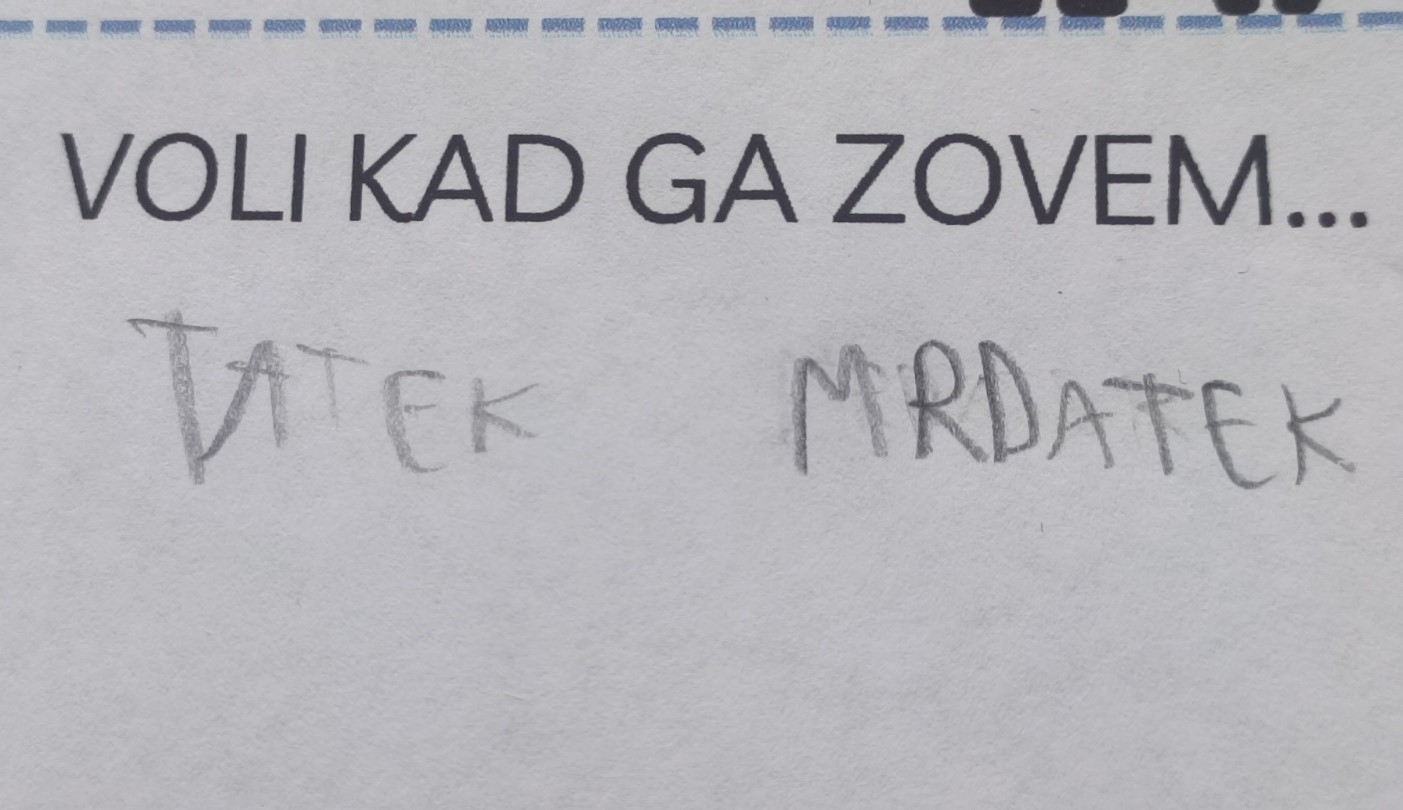 VOLI KAD GA ZOVEM...
TATEK MRDATEK